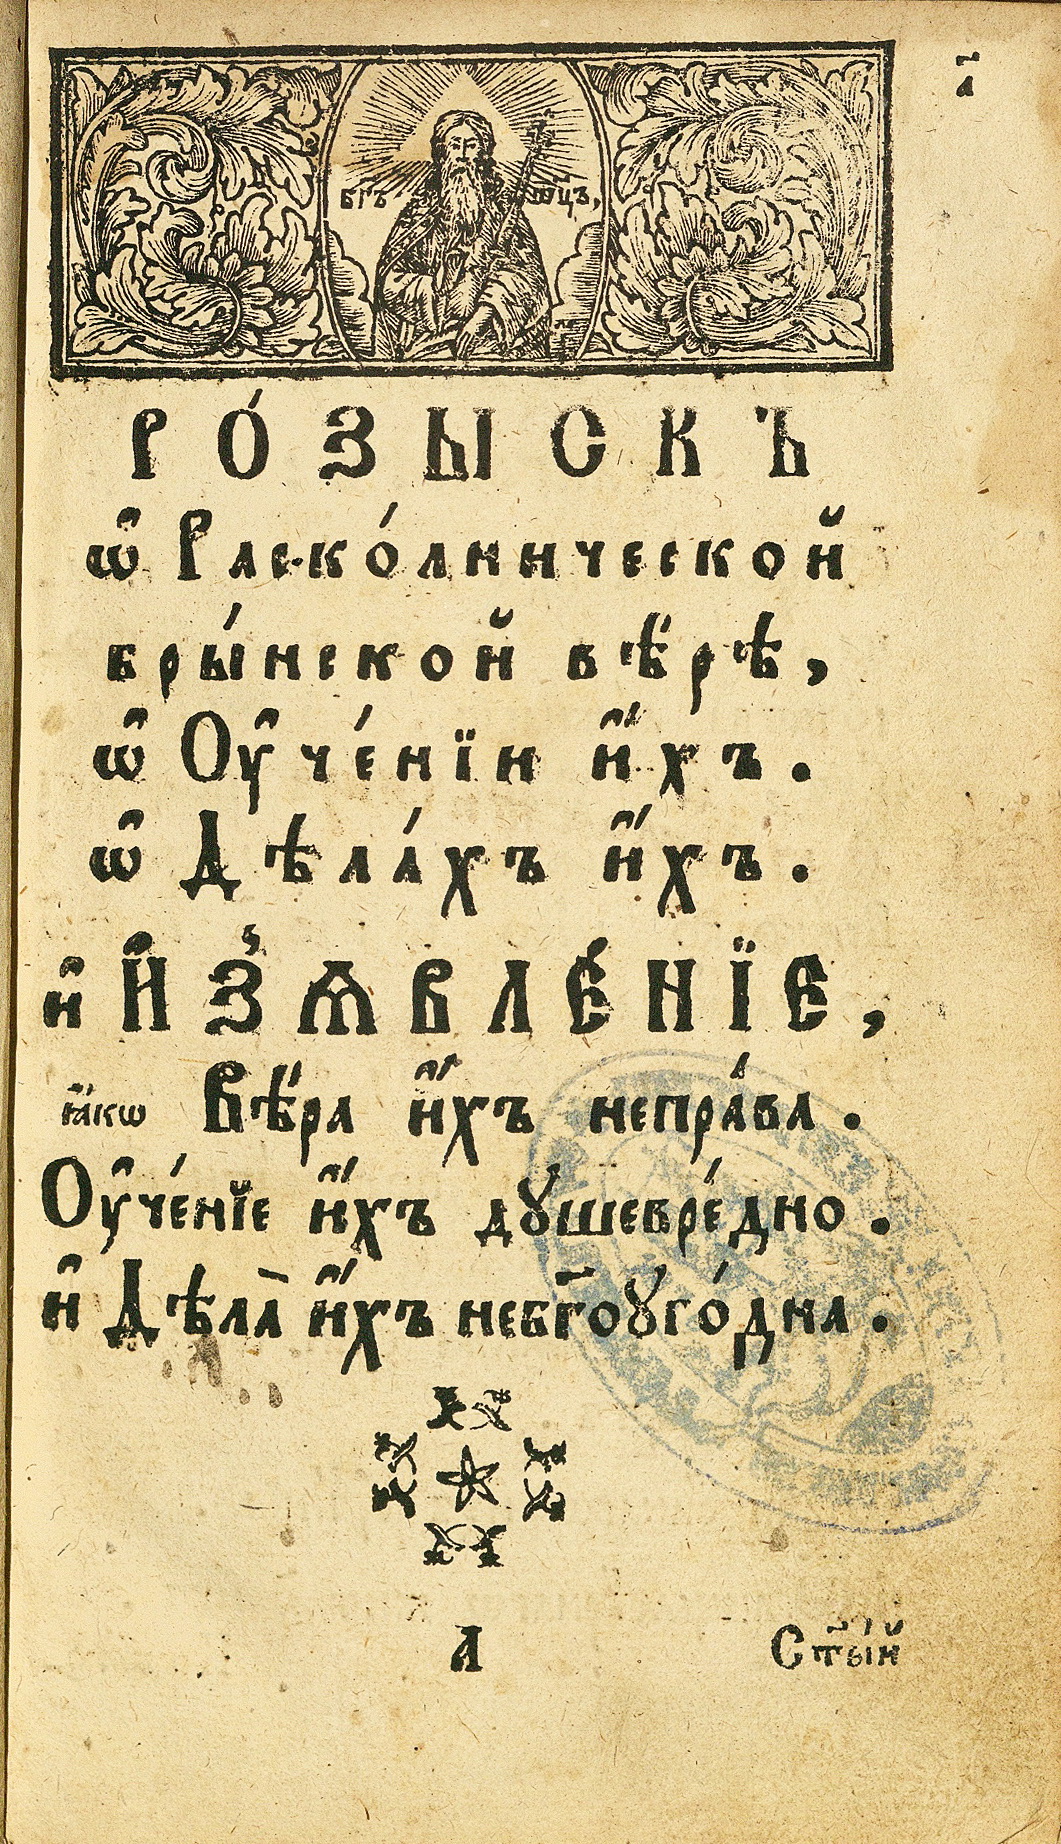 а҃
бг҃ъ ѻц҃ъ,
РО́ЗЫСКЪ
ѡ҆ Раско́лнической
бры́нской вѣ́рѣ,
ѡ҆ Оу҆че́нїи и҆́хъ.
ѡ҆ Дѣла́хъ и҆́хъ.
и҆ И҆З̾ѦВЛЕ́НЇЕ,
ꙗ҆́кѡ Вѣ́ра и҆́хъ непра́ва.
Оу҆че́нїе и҆́хъ дꙋшевре́дно.
и҆ Дѣла̀ и҆́хъ небг҃оꙋго́дна.
А
Ст҃ы́й